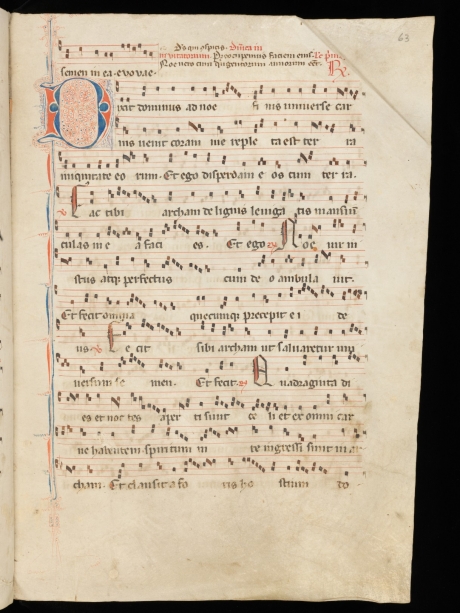 63
Ds qui conspicis. Dñica in
invitatorium. Preoccupemus faciem eius. Ps. Venite.
Noe vero cum quigentorum annorum eẽt. R.
semen in ea. evovae.
Dixit dominus ad noe finis universe car
nis venit coram me reple ta est ter ra
iniquitate eo rum. Et ego disperdam e os cum ter ra.
℣ Fac tibi archam de lignis leviga tis mansiun
culas in e a faci es. Et ego R Noe vir iu
stus atq; perfectus cum de o ambula vit.
Et fecit omnia quecumq; precepit e i de
us ℣ Fe cit sibi archam ut salvaretur uni
versum se men. Et fecit. R Quadraginta di
es et noc tes aper ti sunt ce li et ex omni car
ne habentem spiritum vi te ingressi sunt in ar
cham. Et clausit a fo ris ho stium do